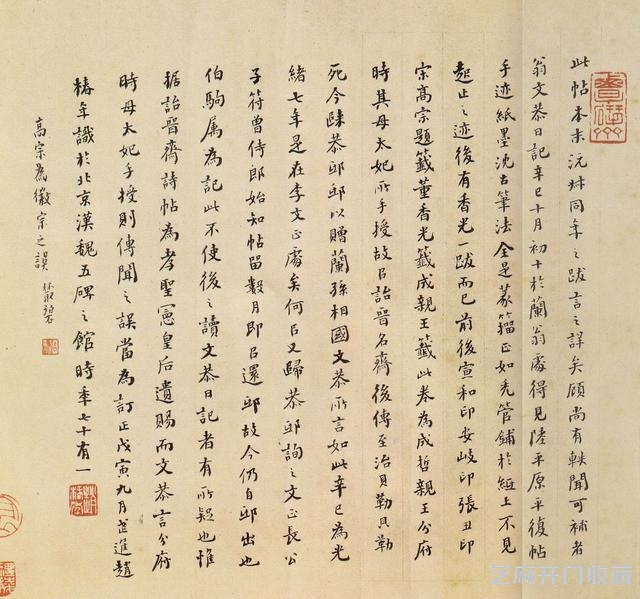 此帖本末沅叔同年之跋言之詳矣顧尚有軼聞可補者
翁文恭日記辛巳十月初十於蘭翁處得見陸平原平復帖
手迹紙墨沈古筆法全是篆籀正如禿管鋪於紙上不見
起止之迹後有香光一跋而已前後宣和印安岐印張丑印
宗高宗題籤董香光籤成親王籤此卷為成哲親王分府
時其母太妃所手授故曰詒晉名齋後傳至治貝勒貝勒
死今歸恭邸邸以贈蘭孫相國文恭所言如此辛巳為光
緒七年是在李文正處矣何日又歸恭邸詢之文正長公
子符曾侍郎始知帖留數月即日還邸故今仍自邸出也
伯駒屬為記此不使後之讀文恭日記者有所疑也惟
据詒晉齋詩帖為孝聖憲皇后遺賜而文恭言分府
時母太妃手授則傳聞之誤當為訂正戊寅九月武進趙
椿年識於北京漢魏五碑之館時年七十有一
高宗為徽宗之誤
芝麻开门收藏